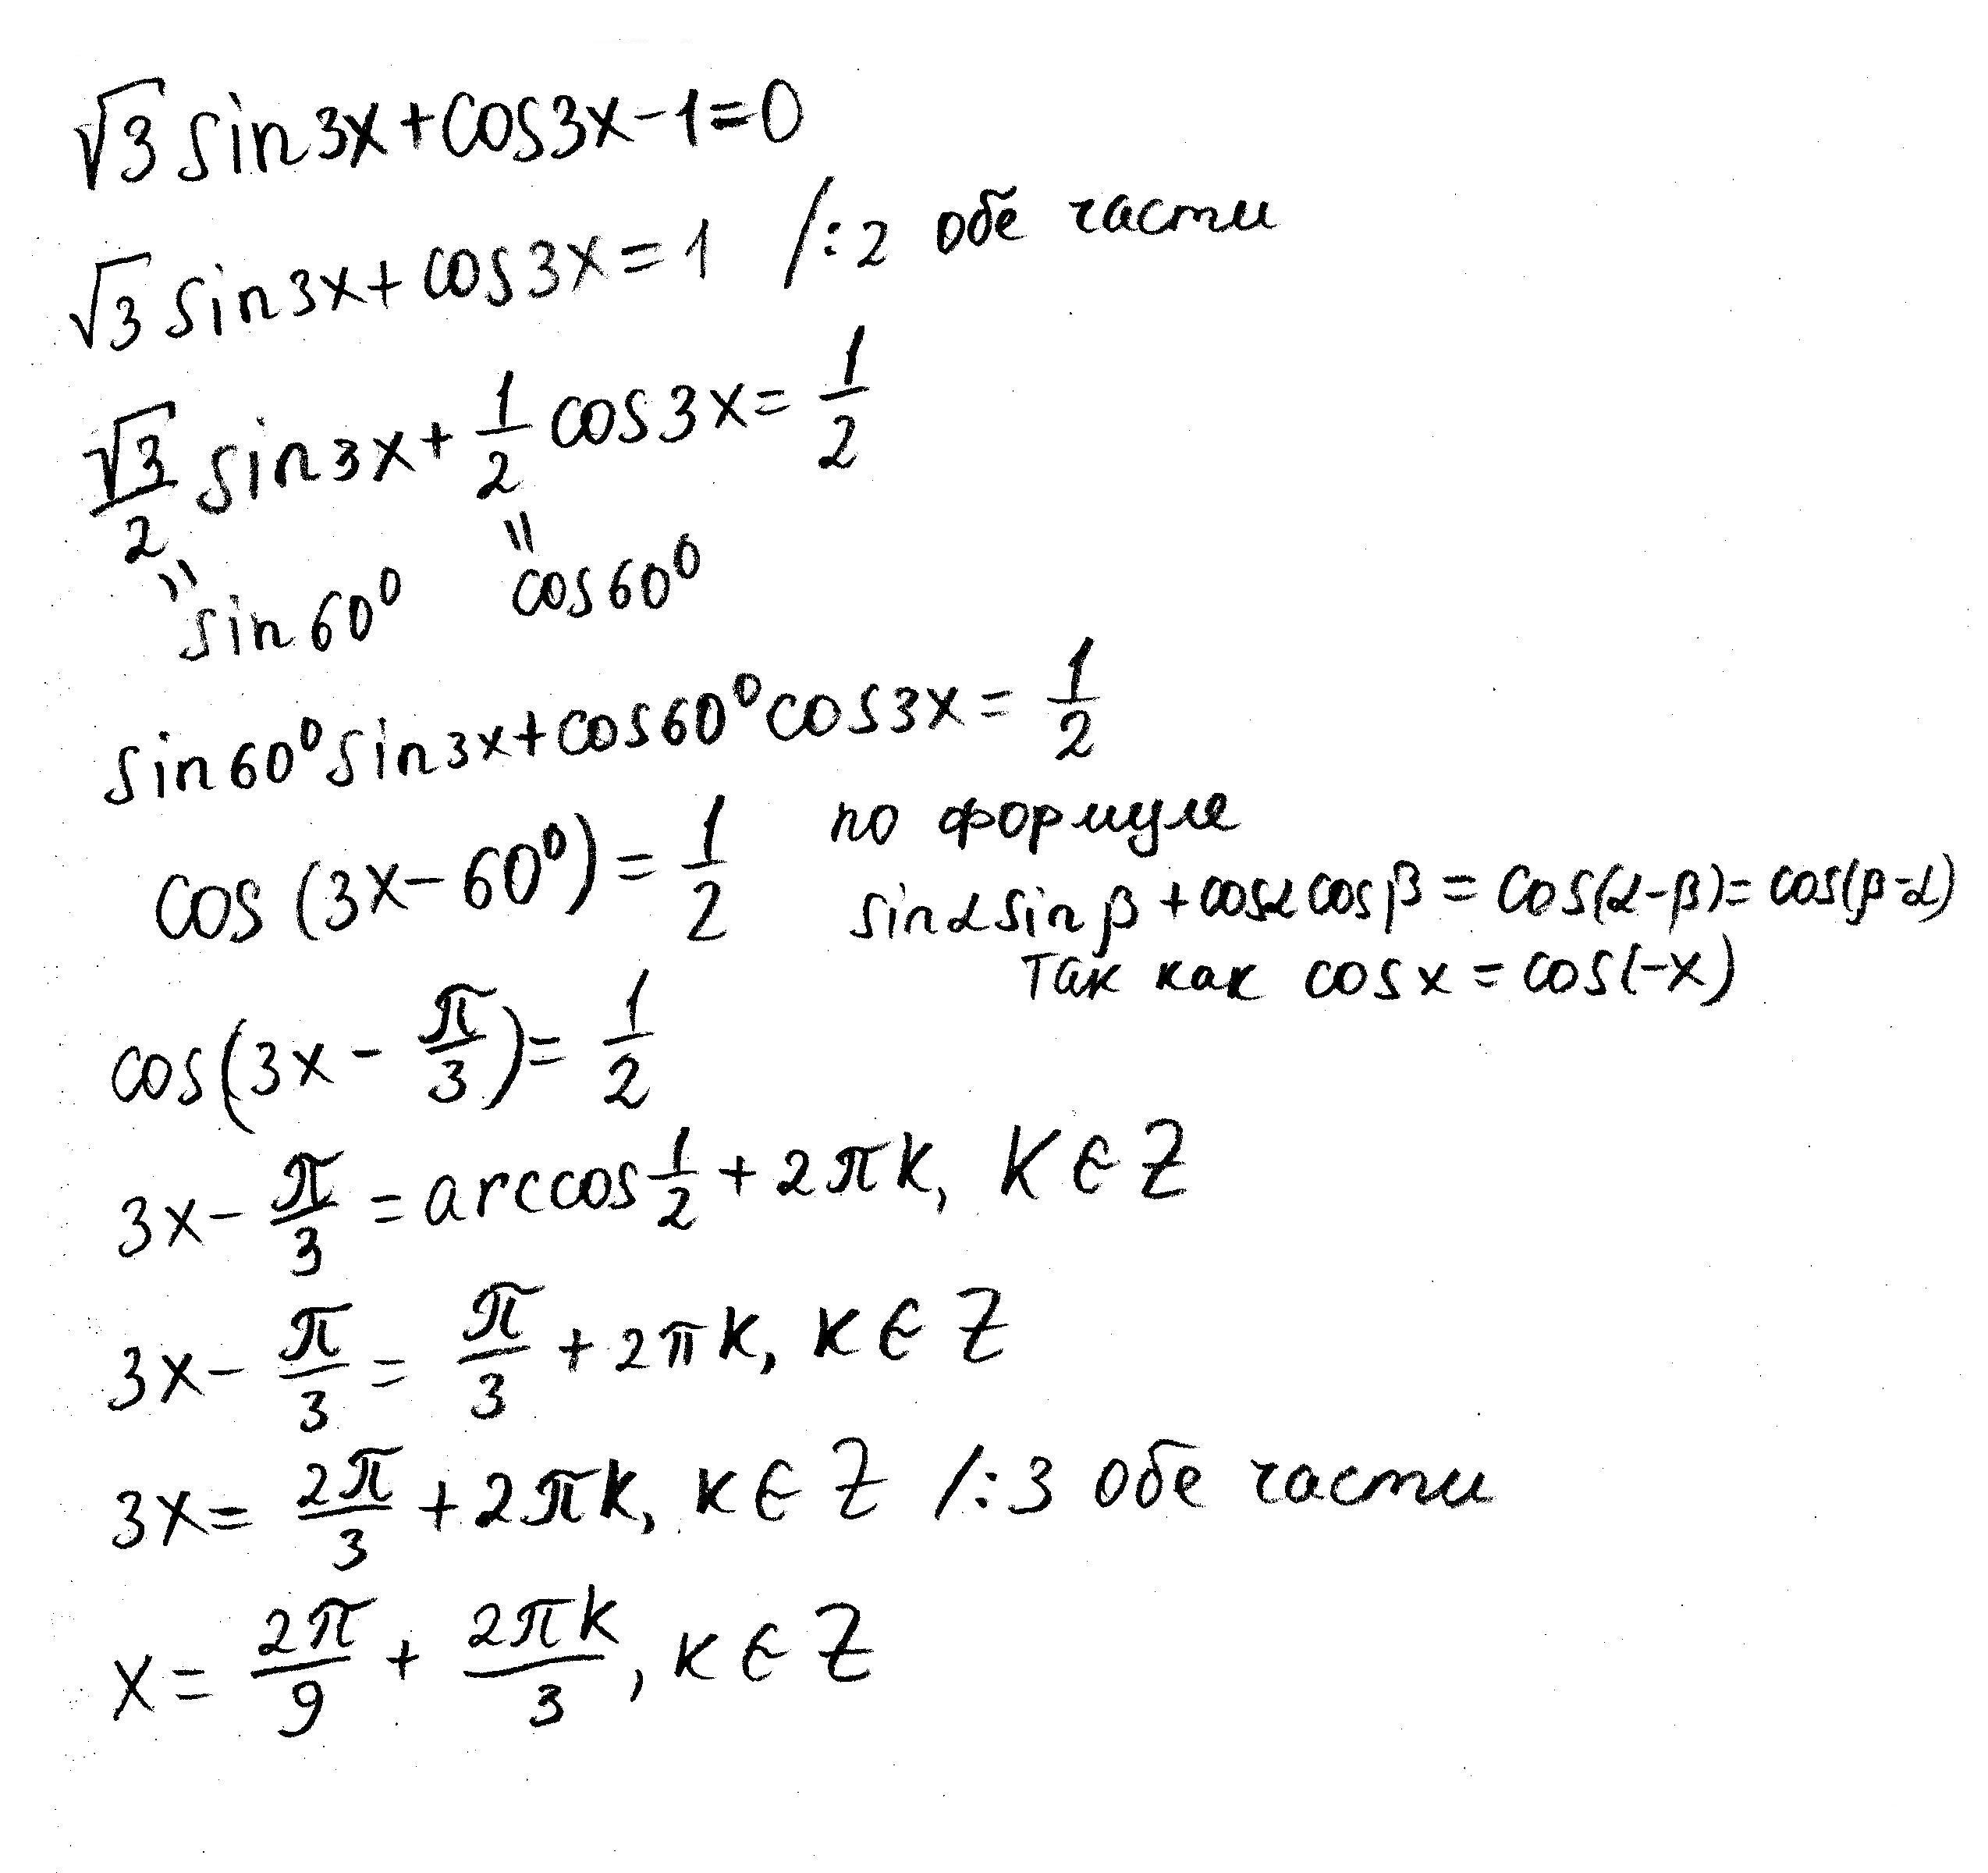 √3 sin3x+cos3x-1=0
√3 sin3x+cos3x=1 /:2 обе части
√3/2 sin3x+1/2 cos3x=1/2
" "
sin60⁰ cos60⁰
sin60⁰sin3x+cos60⁰cos3x=1/2
cos(3x-60⁰)=1/2 по формуле
sinαsinβ+cosαcosβ=cos(α-β)=cos(β-α)
Так как cosx=cos(-x)
cos(3x-π/3)=1/2
3x-π/3=arccos1/2+2πk, k∈Z
3x-π/3=π/3+2πk, k∈Z
3x=2π/3+2πk, k∈Z /:3 обе части
x=2π/9+2πk/3, k∈Z